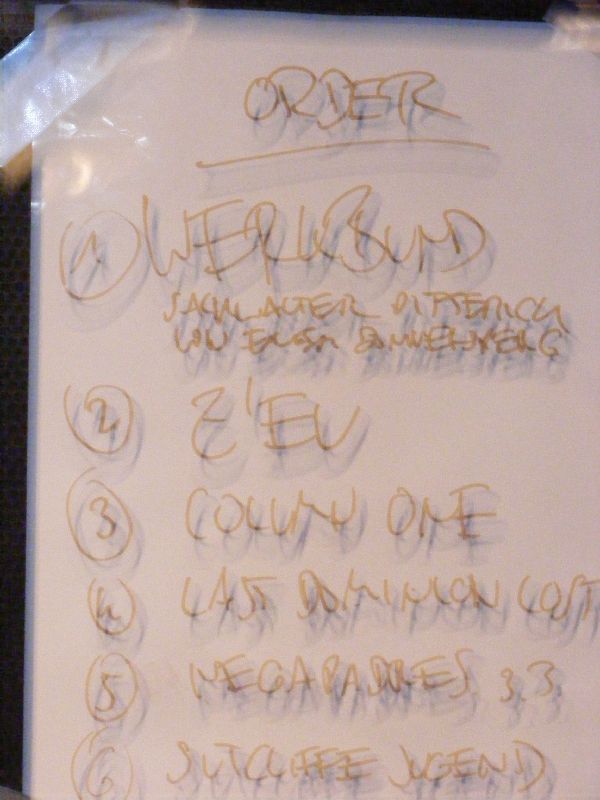 ORDER
1 WERKBUND
DITTERICH
VON
2 Z'EV
3 COLUMN ONE
4 LAST DOMINION LOST
5 MEGAPADRES 3.3.
6 SUTCLIFFE JUGEND